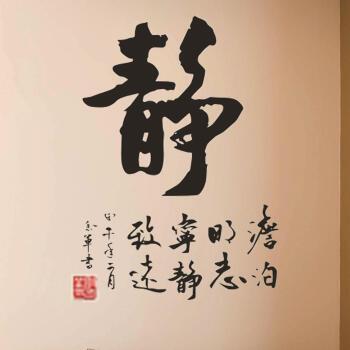 静
澹泊
明志
寧静
致遠
甲午年二月